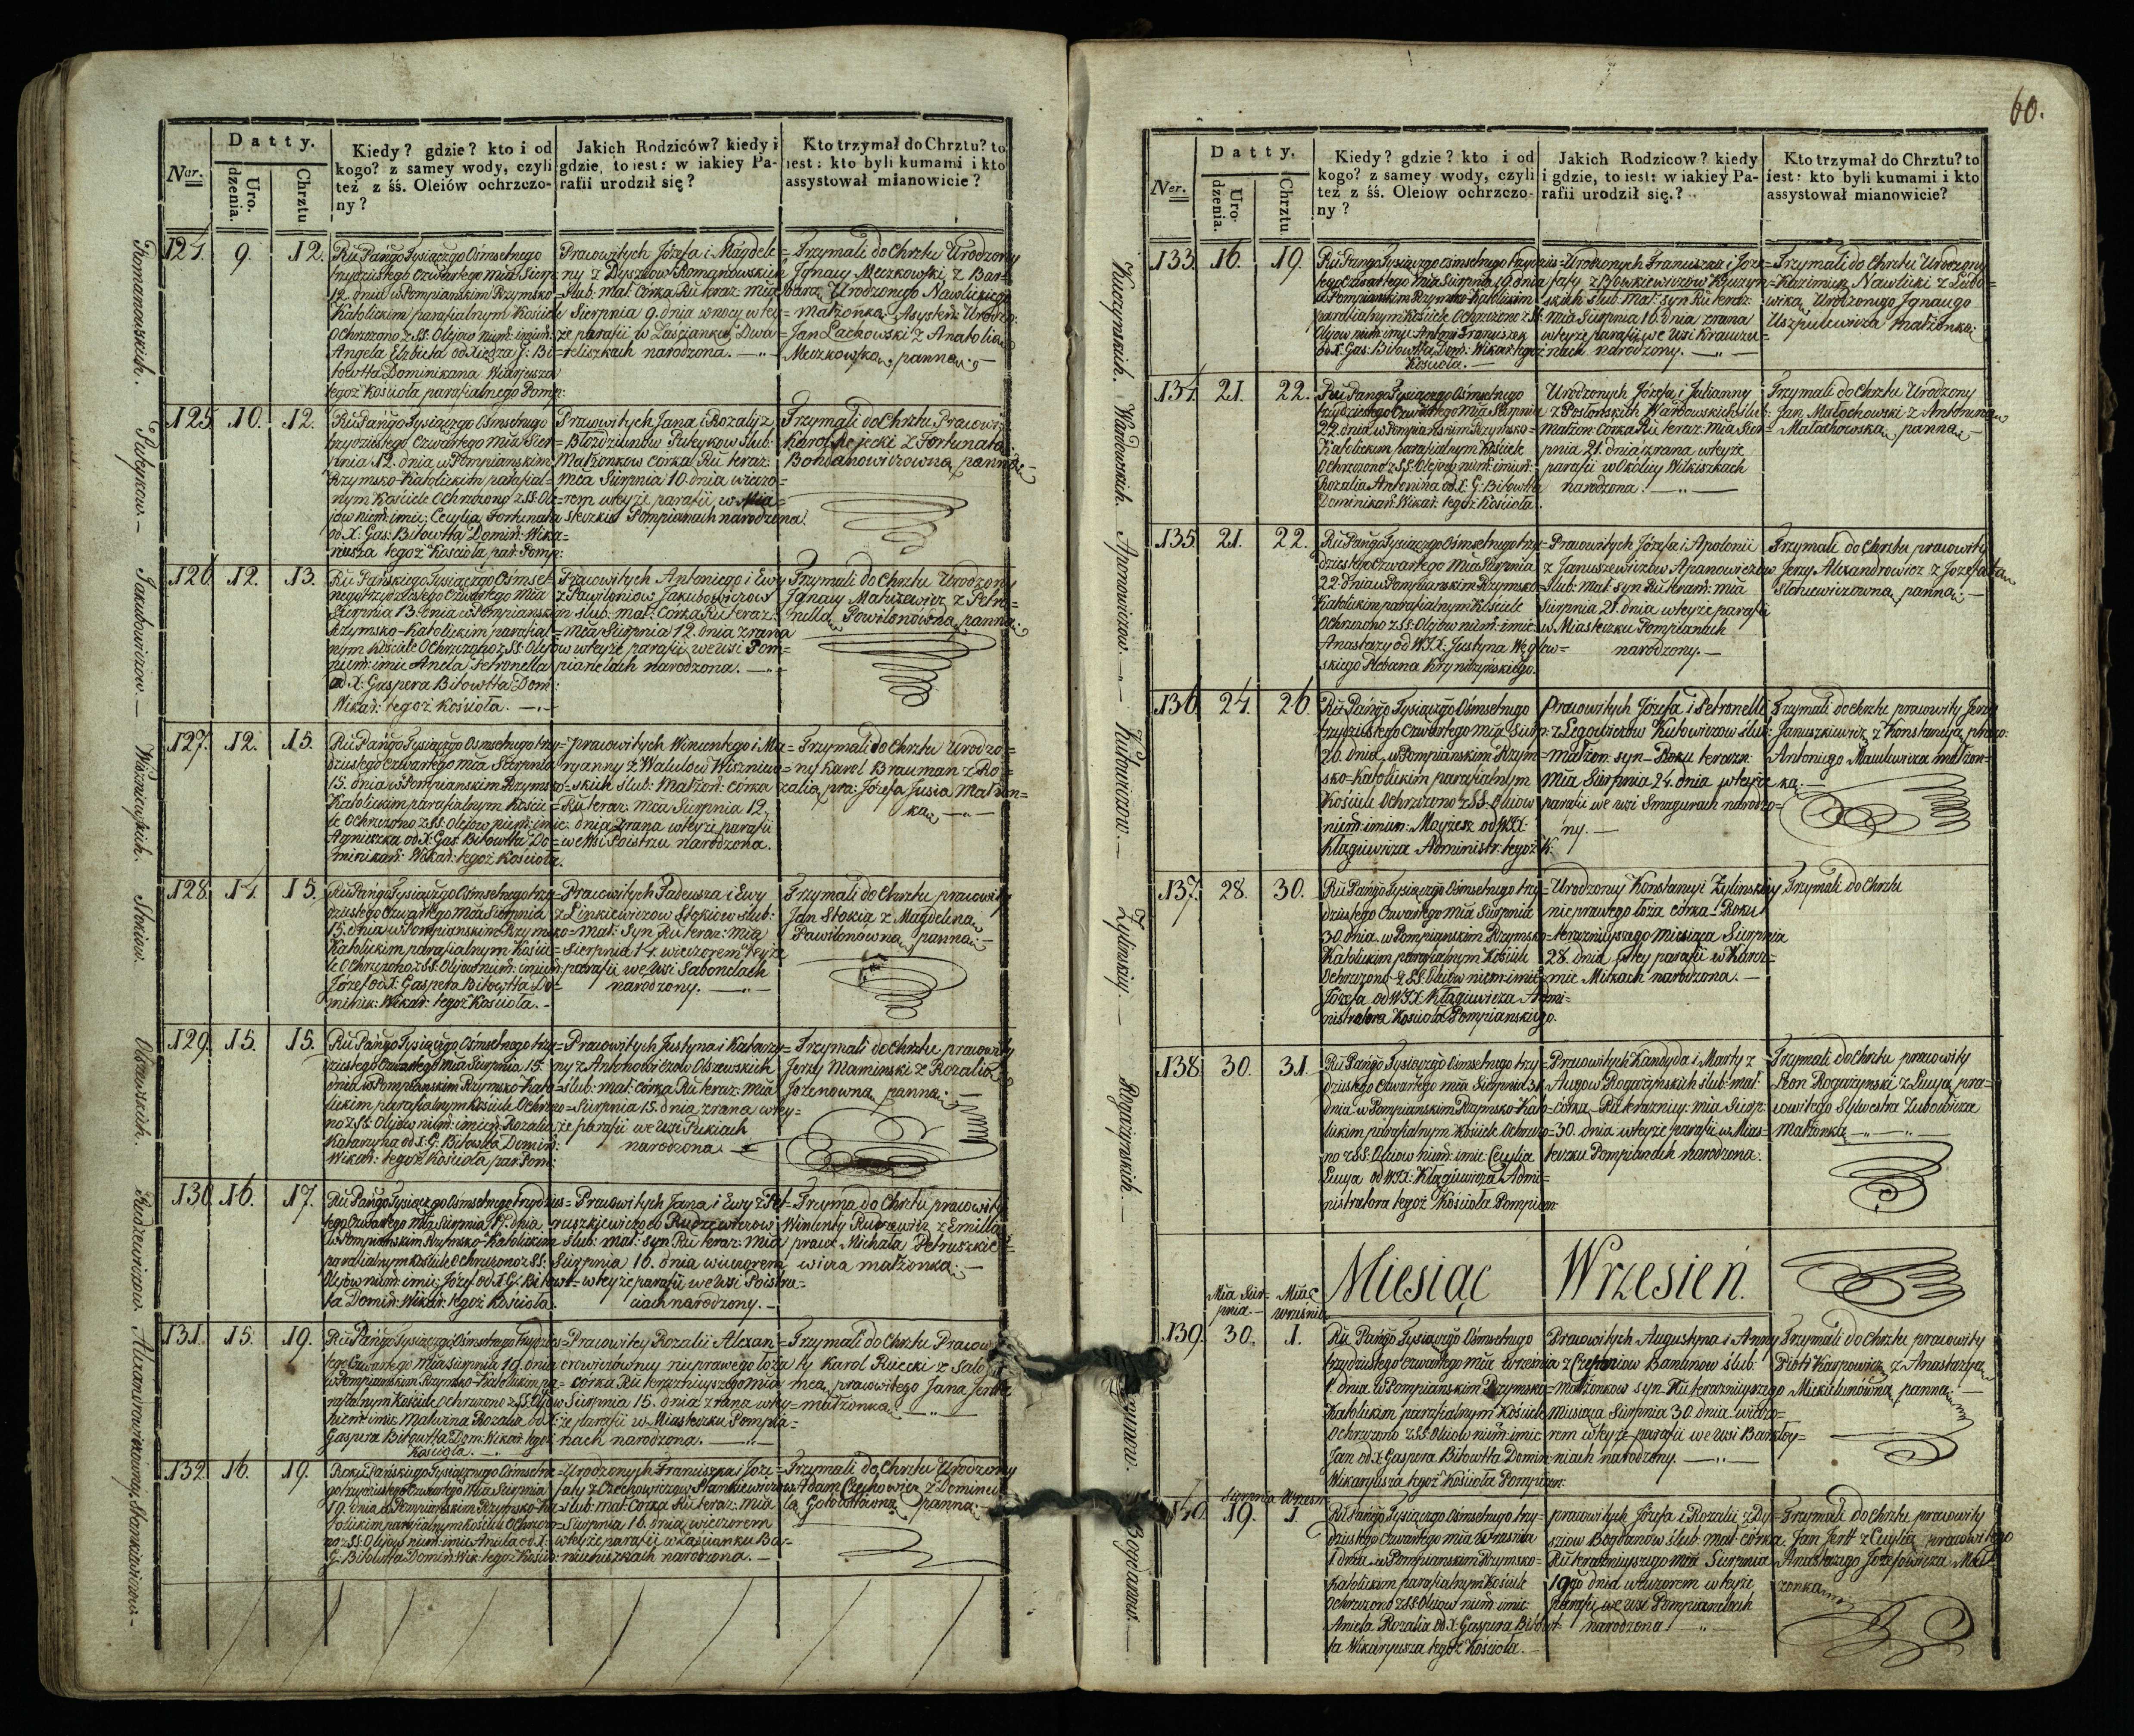 Datty.
Ner.
Uro.
dzenia.
Chrztu
Kiedy? gdzie? kto i od
kogo? z samey wody, czyli
też z śś. Oleiów ochrzczo-
ny?
Jakich Rodziców? kiedy i
gdzie, to iest: w iakiey Pa-
rafii urodził się?
Kto trzymał do Chrztu? to
iest: kto byli kumami i kto
assystował mianowicie?
124. 9. 12.
Ru Pańgo Tysiącznego Ośmsetnego
trzydziestego Czwartego Mca Sierp:
12. dnia w Pompiańskim Rzymsko-
Katolickim parafialnym Kościele
Ochrzczono z SS. Olejów num: imion:
Angela Elżbieta od Xiędza G: Bi-
towtta Dominikana Wikarjusza
tegoż Kościoła parafialnego Pomp:
Pracowitych Józefa i Magdale=
ny z Dyszlów Romanowskich
ślub: mał: Córka Ru teraz: Mca
Sierpnia 9. dnia w nocy w tey=
że parafii w Zaścianku Dwa=
reliszkach narodzona.
Trzymali do Chrztu Urodzony
Ignacy Meczkowski z Bar=
barą Urodzonego Nawlickiego
małżonką. Asysten: Urodzo:
Jan Lachowski z Anatolią
Meczkowską, panną.
125. 10. 12.
Ru Pańgo Tysiącznego Ośmsetnego
trzydziestego Czwartego Mca Sier=
pnia 12. dnia w Pompiańskim
Rzymsko-Katolickim parafial=
nym Kościele Ochrzczono z SS. Ole=
jów num: imie: Cecylia Fortunata
od X: Gas: Bitowtta Domin: Wika=
riusza tegoż Kościoła par: Pomp:
Pracowitych Jana i Rozalij z
Błozdziunów Puteykow ślub:
Małżonkow córka Ru teraz:
mca Sierpnia 10. dnia wieczo=
rem w teyże parafii w Mia=
steczku Pompianach narodzona.
Trzymali do Chrztu Pracowi:
Karol Rejecki z Fortunatą
Bohdanowiczowną, panną.
126. 12. 13.
Ru Pańskiego Tysiącznego Ośmset=
nego trzydziestego Czwartego Mca
Sierpnia 13. dnia w Pompiańskim
Rzymsko-Katolickim parafial=
nym Kościele Ochrzczono z SS: Olejow
num: imie Aniela Petronella
od X: Gaspera Bitowtta Dom:
Wikar: tegoż Kościoła.
Pracowitych Antoniego i Ewy
z Pawiloniow Jakubowiczow
ślub: mał: Córka Ru teraz:
mca Sierpnia 12. dnia z rana
w teyże parafii we wsi Pom=
pianelach narodzona.
Trzymali do Chrztu Urodzony
Ignacy Matuzewicz z Petro=
nellą Powilonowną, panną.
127. 12. 15.
Ru Pańgo Tysiącznego Ośmsetnego trzy=
dziestego Czwartego Mca Sierpnia
15. dnia w Pompiańskim Rzymsko=
Katolickim parafialnym Koście=
le Ochrzczono z SS. Olejow num: imie:
Agnieszka od X: Gas: Bitowtta Do=
minikan: Wikar: tegoż Kościoła.
pracowitych Wincentego i Ma=
ryanny z Watulow Wiszniew=
skich ślub: Małżoń: córka
Ru teraz: mca Sierpnia 12.
dnia z rana w teyże parafii
we wsi Poistrzu narodzona.
Trzymali do Chrztu Urodzo=
ny Karol Brauman z Ro=
zalią pra: Józefa Jusia małżon=
ką
128. 14. 15.
Ru Pańgo Tysiącznego Ośmsetnego trzy=
dziestego Czwartego Mca Sierpnia
15. dnia w Pompiańskim Rzymsko=
Katolickim parafialnym Kości=
le Ochrzczono z SS. Olejow num: imien:
Józef od X: Gaspera Bitowtta Do=
minik: Wikar: tegoż Kościoła.
Pracowitych Tadeusza i Ewy
z Linkiewiczow Stokiow ślub:
mał: Syn Ru teraz: mca
Sierpnia 14. wieczorem w teyże
parafii we wsi Sabonelach
narodzony.
Trzymali do Chrztu pracowity
Jan Stokia z Magdeleną
Pawilonówną panną.
129. 15. 15.
Ru Pańgo Tysiącznego Ośmsetnego trzy=
dziestego Czwartego Mca Sierpnia 15.
dnia w Pompiańskim Rzymsko-Kato=
lickim parafialnym Kościele Ochrzczo=
no z SS. Olejow num: imien: Rozalia
Katarzyna od X. G. Bitowtta Domin:
Wikar: tegoż Kościoła par: Pom:
Pracowitych Justyna i Katarzy=
ny z Antonowiczow Olszewskich
ślub: mał: córka Ru teraz: Mca
Sierpnia 15. dnia z rana w tey=
że parafii we wsi Pukiach
narodzona.
Trzymali do Chrztu pracowity
Jerzy Maminski z Rozalią
Jozenowną panną.
130. 16. 17.
Ru Pańgo Tysiącznego Ośmsetnego trzydzies=
tego Czwartego Mca Sierpnia 17. dnia
w Pompiańskim Rzymsko-Katolickim
parafialnym Kościele Ochrzczono z SS:
Olejow num: imie: Józef od X. G. Bitowt=
ta Domin: Wikar: tegoż Kościoła.
Pracowitych Jana i Ewy z Pet=
ruszkiewiczow Rudzewiczow
ślub: mał: syn Ru teraz: Mca
Sierpnia 16. dnia wieczorem
w teyże parafii we wsi Poistra=
ciach narodzony.
Trzyma: do Chrztu pracowity
Wincenty Rudzewicz z Emillią
praw: Michała Petruszkie=
wicza małżonką.
131. 15. 19.
Ru Pańgo Tysiącznego Ośmsetnego trzydzies=
tego Czwartego Mca Sierpnia 19. dnia
w Pompiańskim Rzymsko-Katolickim pa=
rafialnym Kościele Ochrzczono z SS. Olejow
num: imie: Malwina Rozalia od X:
Gaspera Bitowtta Dom: Wikar: tegoż
Kościoła.
Pracowitey Rozalii Alexan=
drowiczówney nieprawego łoża
córka Ru teraznieyszego Mca
Sierpnia 15. dnia z rana w tey=
że parafii w Miasteczku Pompia=
nach narodzona.
Trzymali do Chrztu Pracow:
ty Karol Reiecki z Salo=
meą pracowitego Jana
małżonką.
132. 16. 19.
Roku Pańskiego Tysiącznego Ośmsetne=
go trzydziestego Czwartego Mca Sierpnia
19. dnia w Pompiańskim Rzymsko-Ka=
tolickim parafialnym Kościele Ochrzczo=
no z SS. Olejow num: imie Aniela od X:
G: Bitowtta Domin: Wik: tegoż Kościo:
Urodzonych Franciszka i Józe=
faty z Czechowiczow Stankiewiczow
ślub: mał: Córka Ru teraz: Mca
Sierpnia 16. dnia wieczorem
w teyże parafii w Zaścianku Ba=
niuniszkach narodzona.
Trzymali do Chrztu Urodzony
Adam Czechowicz z Domincel=
lą panną.
Romanowskich.
Puteykow.
Jakubowiczow.
Wiszniewskich.
Stokiow.
Olszewskich.
Rudzewiczow.
Alexandrowiczowny.
Stankiewiczow.
60.
Datty.
Ner.
Uro-
dzenia.
Chrztu.
Kiedy? gdzie? kto i od
kogo? z samey wody, czyli
też z śś. Oleiow ochrzczo-
ny?
Jakich Rodzicow? kiedy
i gdzie, to iest: w iakiey Pa-
rafii urodził się?
Kto trzymał do Chrztu? to
iest: kto byli kumami i kto
assystował mianowicie?
133. 16. 19.
Ru Pańgo Tysiącznego Ośmsetnego trzydzies=
tego Czwartego Mca Sierpnia 19. dnia
w Pompiańskim Rzymsko-Katolickim
parafialnym Kościele Ochrzczono z SS:
Olejow num: imie Antoni Franciszek
od X: Gas: Bitowtta Dom: Wikar: tegoż
Kościoła.
Urodzonych Franciszka i Józe=
faty z Bitowskiewiczow Kuczyn=
skich ślub: mał: syn Ru teraz:
mca Sierpnia 16. dnia z rana
w teyże parafii we wsi Krawcze=
nach narodzony.
Trzymali do Chrztu Urodzony
Kazimierz Nawlicki z Ludo=
wiką Urodzonego Ignacego
Uszpulewicza małżonką.
134. 21. 22.
Ru Pańgo Tysiącznego Ośmsetnego
trzydziestego Czwartego Mca Sierpnia
22. dnia w Pompiańskim Rzymsko=
Katolickim parafialnym Kościele
Ochrzczono z SS. Olejow num: imien:
Rozalia Antonina od X: G: Bitowtta
Dominikan: Wikar: tegoż Kościoła.
Urodzonych Józefa i Julianny
z Postońskich Wardowskich ślub:
małżon: córka Ru teraz: Mca Sier=
pnia 21. dnia z rana w teyże
parafii w Okolicy Witkiszkach
narodzona.
Trzymali do Chrztu Urodzony
Jan Małochowski z Antoniną
Małachowską, panną.
135. 21. 22.
Ru Pańgo Tysiącznego Ośmsetnego trzy=
dziestego Czwartego Mca Sierpnia
22. dnia w Pompiańskim Rzymsko=
Katolickim parafialnym Kościele
Ochrzczono z SS. Olejow num: imie:
Anastazy od WJX: Justyna Węcław=
skiego Plebana Krynczyńskiego.
Pracowitych Józefa i Apolonii
z Januszewiczow Apanowiczow
ślub: mał: syn Ru teraz: mca
Sierpnia 21. dnia w teyże parafii
w Miasteczku Pompianach
narodzony.
Trzymali do Chrztu pracowity
Jerzy Alexandrowicz z Jozefatą
Statkiewiczowną panną.
136. 24. 26.
Ru Pańgo Tysiącznego Ośmsetnego
trzydziestego Czwartego Mca Sierp:
26. dnia w Pompiańskim Rzym=
sko-Katolickim parafialnym
Kościele Ochrzczono z SS. Oleiow
num: imien: Moyżesz od WJX:
Kłagiewicza Administr: tegoż K:
Pracowitych Józefa i Petronelli
z Legowiczow Kubowiczow ślub:
małżon: syn Roku teraz:
Mca Sierpnia 24. dnia w teyże
parafii we wsi Smagurach narodzo=
ny.
Trzymali do Chrztu pracowity Jerzy
Januszkiewicz z Konstancyą praco:
Antoniego Mawlewicza małżon=
ką.
137. 28. 30.
Ru Pańgo Tysiącznego Ośmsetnego trzy=
dziestego Czwartego Mca Sierpnia
30. dnia w Pompiańskim Rzymsko=
Katolickim parafialnym Kościele
Ochrzczono z SS. Oleiow num: imie:
Józefa od WJX Kłagiewicza Admi=
nistratora Kościoła Pompiańskiego.
Urodzoney Konstancyi Żylińskiey
nieprawego łoża córka Roku
teraznieyszego Miesiąca Sierpnia
28. dnia w tey parafii w Karcz=
mie Mitkach narodzona.
Trzymali do Chrztu
138. 30. 31.
Ru Pańgo Tysiącznego Ośmsetnego trzy=
dziestego Czwartego Mca Sierpnia 31.
dnia w Pompiańskim Rzymsko-Kato=
lickim parafialnym Kościele Ochrzczo=
no z SS. Oleiow num: imie: Cecylia
Łucya od WJX: Kłagiewicza Admi=
nistratora tegoż Kościoła Pompian:
Pracowitych Kandyda i Marty z
Augow Rogażyńskich ślub: mał:
córka Ru terazniey: mca Sierp:
30. dnia w teyże parafii w Mias=
teczku Pompianach narodzona.
Trzymali do Chrztu pracowity
Leon Rogażynski z Łucyą pra=
cowitego Sylwestra Zubowicza
małżonką
Miesiąc Wrzesień.
Mca Sier=
pnia.
Mca
września
139. 30. 1.
Ru Pańgo Tysiącznego Ośmsetnego
trzydziestego Czwartego Mca Września
1. dnia w Pompiańskim Rzymsko=
Katolickim parafialnym Kościele
Ochrzczono z SS Oleiow num: imie:
Jan od X: Gaspera Bitowtta Domin:
Wikaryusza tegoż Kościoła Pompian:
Pracowitych Augustyna i Anny
z Czeponiow Bantynow ślub:
małżonkow syn Ru teraznieyszego
Miesiąca Sierpnia 30. dnia wieczo=
rem w teyże parafii we wsi Bankty=
niach narodzony.
Trzymali do Chrztu pracowity
Piotr Karpowicz z Anastazyą
Mickielunówną panną.
Sierpnia Wrzesn:
140. 19. 1.
Ru Pańgo Tysiącznego Ośmsetnego trzy=
dziestego Czwartego mca Września
1 dnia w Pompiańskim Rzymsko=
Katolickim parafialnym Kościele
Ochrzczono z SS. Oleiow num: imie:
Aniela Rozalia od X: Gaspera Bitowt=
ta Wikaryusza tegoż Kościoła.
pracowitych Józefa i Rozalii z Dy=
szlow Bogdanów ślub: mał: córka
Ru teraznieyszego mca Sierpnia
19go dnia wieczorem w teyże
parafii we wsi Pompianelach
narodzona
Trzymali do Chrztu pracowity
Jan z Cecylią pracowitego
Anastazego Józefowicza Mał=
żonką
Kuczynskich.
Wardowskich.
Aponowiczow.
Kubowiczow.
Żylinskiey.
Rogażynskich.
Bogdanow.